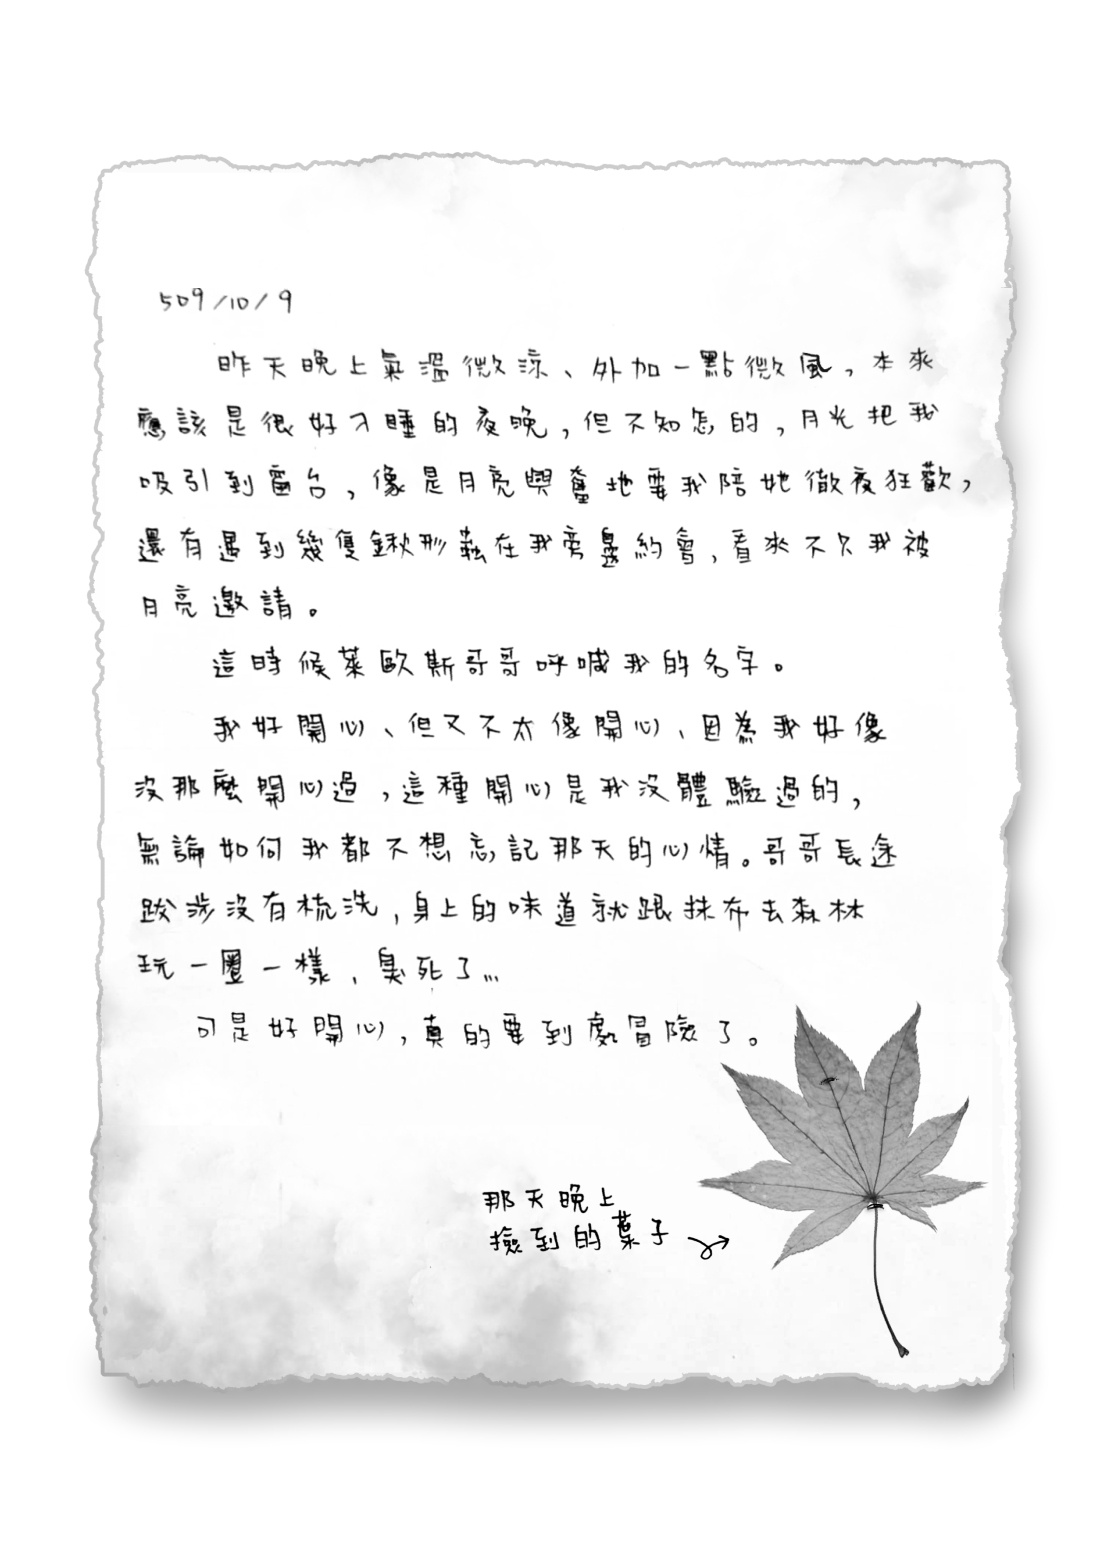 509/10/9
昨天晚上氣溫微涼、外加一點微風，本來
應該是很好入睡的夜晚，但不知怎的，月光把我
吸引到窗台，像是月亮興奮地要我陪她徹夜狂歡，
還有遇到幾隻鍬形蟲在我旁邊約會，看來不久我被
月亮邀請。
這時候萊歐斯哥哥呼喊我的名字。
我好開心、但又不太像開心、因為我好像
沒那麼開心過，這種開心是我沒體驗過的，
無論如何我都不想忘記那天的心情。哥哥長途
跋涉沒有梳洗，身上的味道就跟抹布去森林
玩一圈一樣，臭死了...
可是好開心，真的要到處冒險了。
那天晚上
撿到的葉子